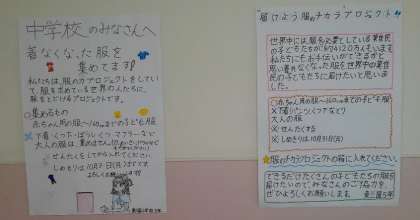 中学校のみなさんへ
着なくなった服を
集めてます!!
私たちは、服の力プロジェクトをしていて、
服を求めている世界の人たちに、
服をとどけるプロジェクトです。
集めるもの
赤ちゃん用の服〜160cmまでの子ども服
大人の服は、集めません
せんたくをしてから入れてください。
しめきりは10月31日(月)までです
よろしくお願いします
届けよう服のチカラプロジェクト
世界中には服を必要としている難民
の子どもたちが
私たちにもお手伝いができるかと
思い着れなくなった服を世界中の難民
の子どもたちに届けたいと思いまし
た。
赤ちゃん用の服〜160cmまでの子ども服
大人の服
※せんたくする
※しめきりは10月31日(月)
服のチカラプロジェクトの箱に入れてください。
できるだけたくさんの子どもたちの服を
届けたいので、みなさんのご協力を
よろしくお願いします。